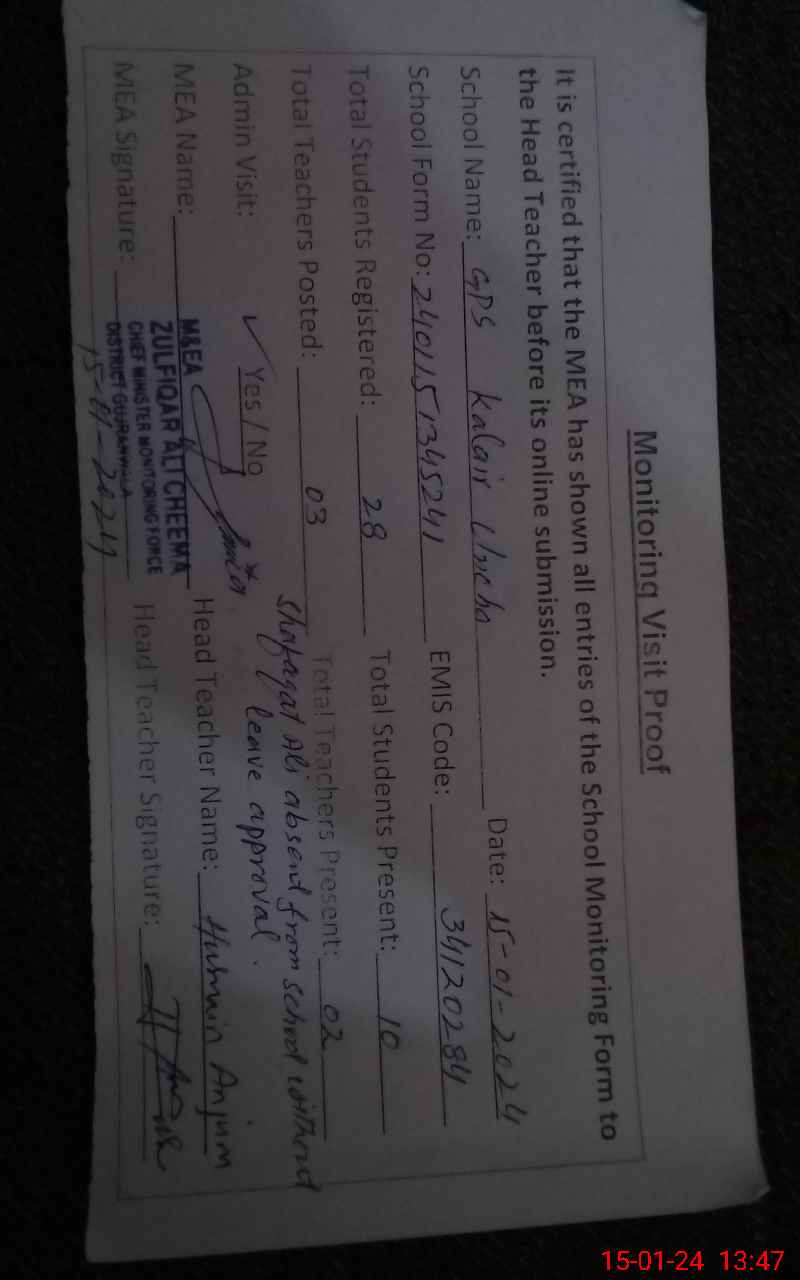 Monitoring Visit Proof
It is certified that the MEA has shown all entries of the School Monitoring Form to
the Head Teacher before its online submission.
School Name: GPS Kalair Uncha Date: 15-01-2024
School Form No: 240115134524 1 EMIS Code: 34120284
Total Students Registered: 28 Total Students Present: 10
Total Teachers Posted: 03 Total Teachers Present: 02
Shafaqat Ali absent from school without
leave approval.
Admin Visit: ✓ Yes / No
MEA Name: Head Teacher Name: Anjum
M&EA
ZULFIQAR ALI CHEEMA
CHIEF MINISTER MONITORING FORCE
DISTRICT GUJRANWALA
MEA Signature: 15-01-2024 Head Teacher Signature:
15-01-24 13:47